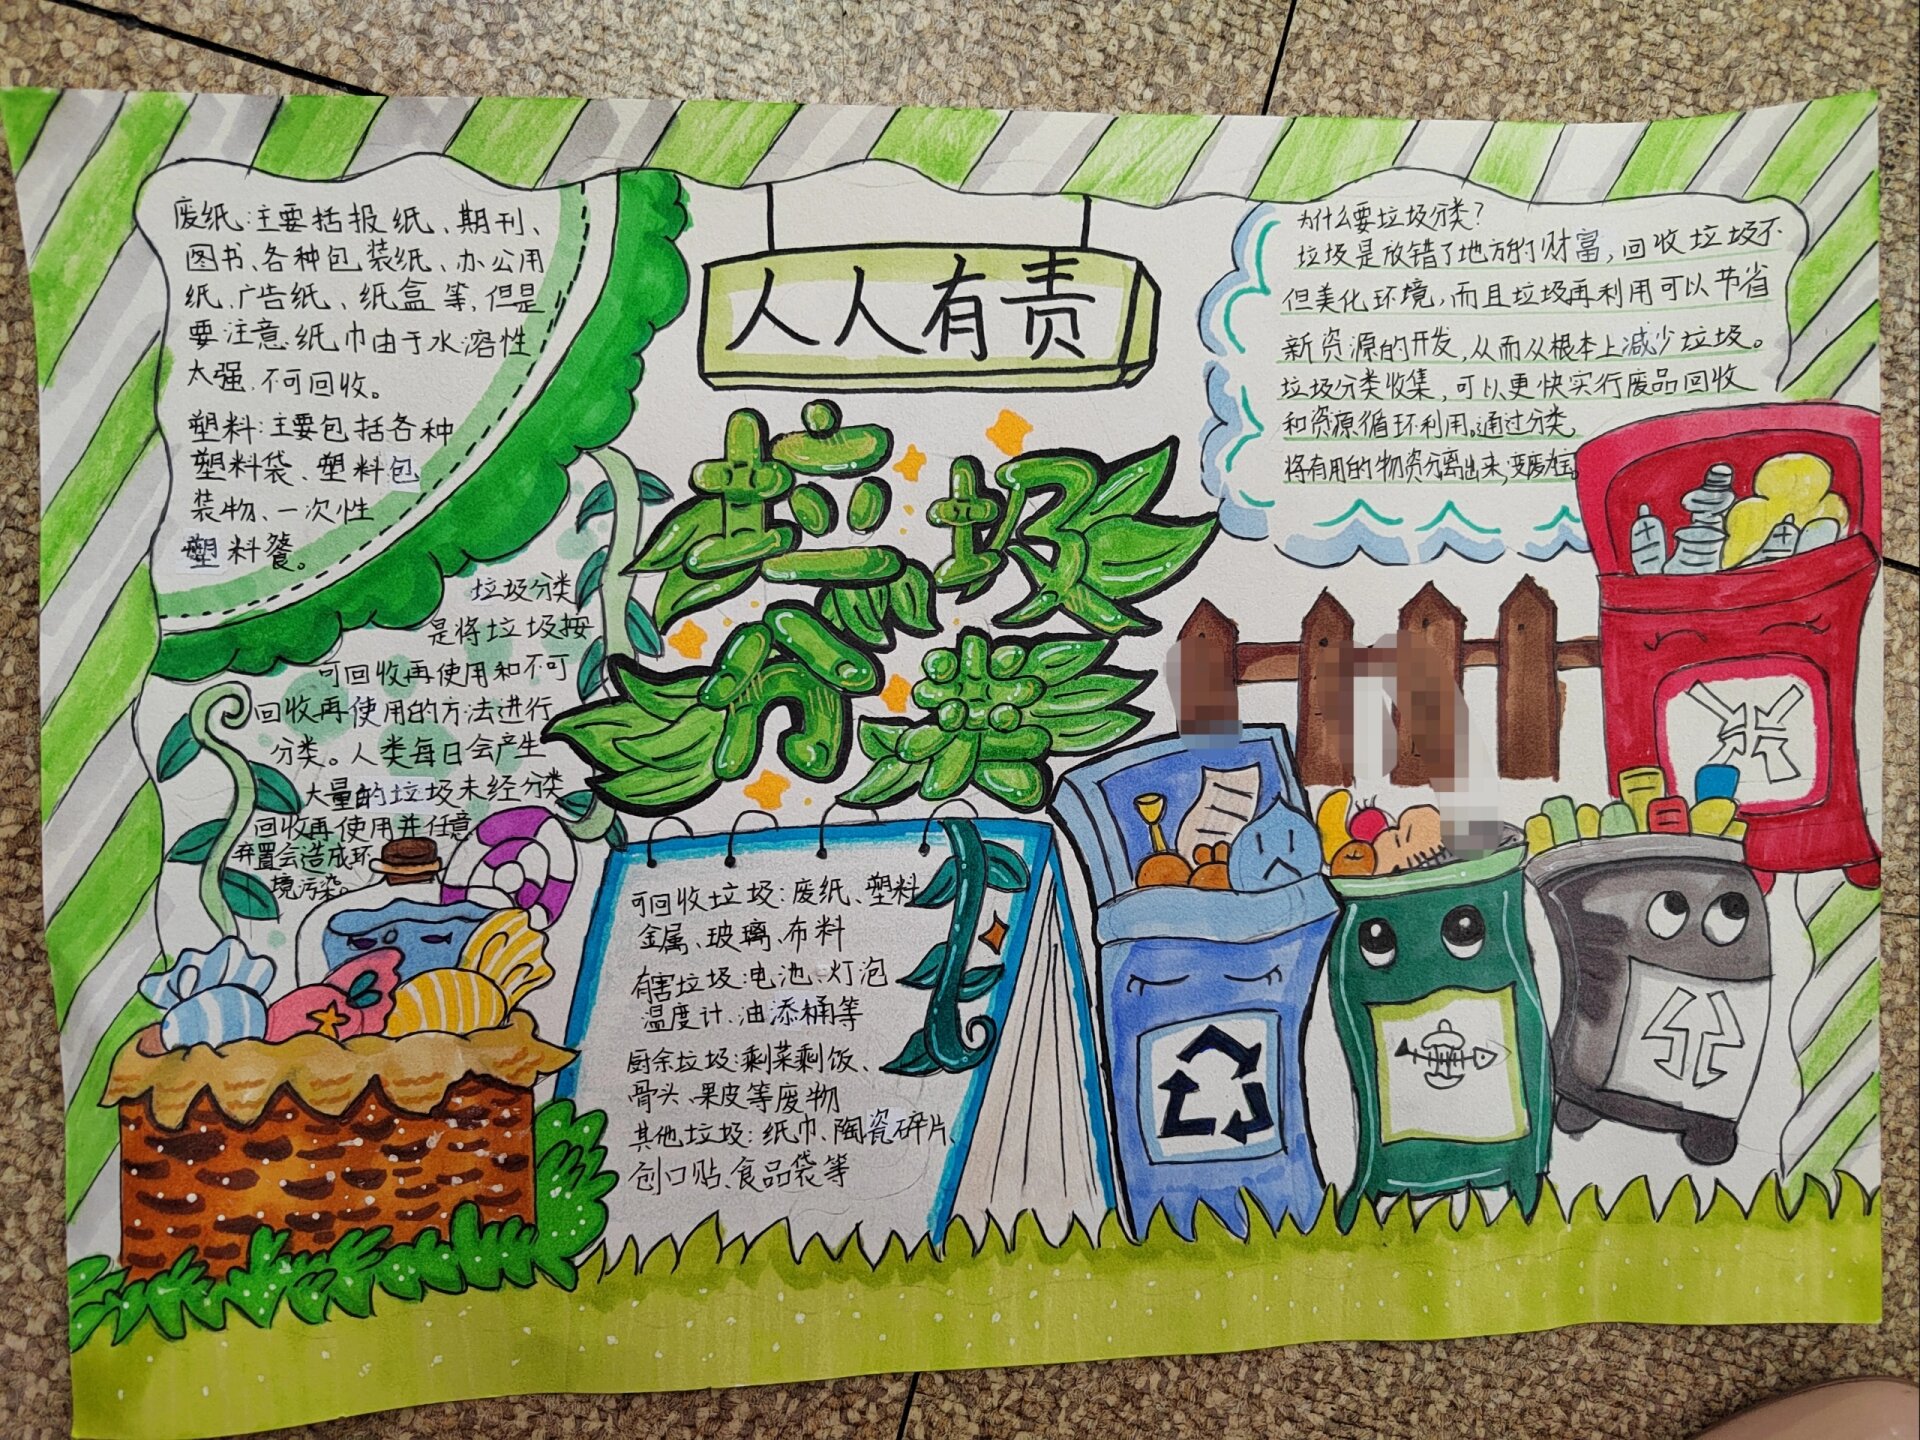 人人有责
垃圾
分类
废纸:主要括报纸、期刊、
图书、各种包装纸、办公用
纸、广告纸、纸盒等,但是
要注意纸巾由于水溶性
太强、不可回收。
塑料:主要包括各种
塑料袋、塑料包
装物、一次性
塑料餐。
垃圾分类
是将垃圾按
可回收再使用和不可
回收再使用的方法进行
分类。人类每日会产生
大量的垃圾未经分类
回收再使用并任意
弃置会造成环
境污染。
可回收垃圾:废纸、塑料
金属、玻璃、布料
有害垃圾:电池、灯泡
温度计、油添桶等
厨余垃圾:剩菜剩饭、
骨头、果皮等废物
其他垃圾:纸巾、陶瓷碎片、
创口贴、食品袋等
为什么要垃圾分类?
垃圾是放错了地方的财富,回收垃圾不
但美化环境,而且垃圾再利用可以节省
新资源的开发,从而从根本上减少垃圾。
垃圾分类收集,可以更快实行废品回收
和资源循环利用。通过分类,
将有用的物资分离出来,变废为宝。